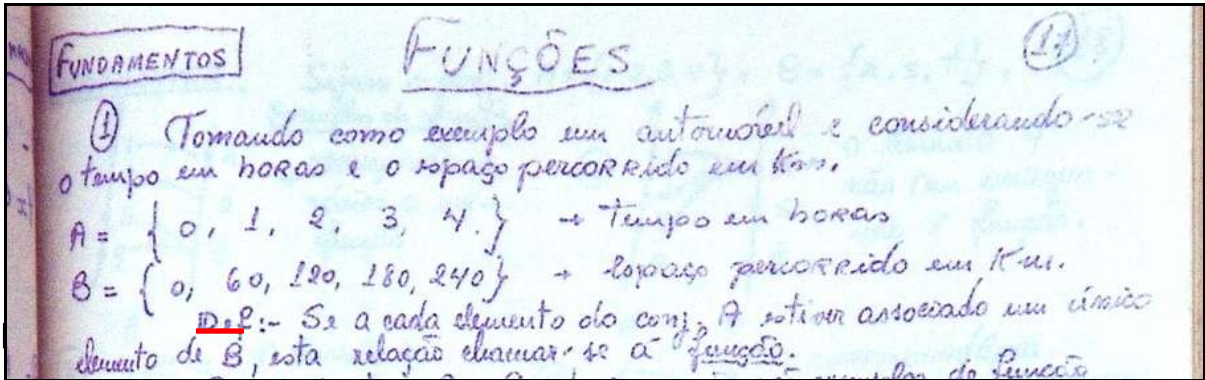 FUNDAMENTOS FUNÇÕES 17
① Tomando como exemplo um automóvel e considerando-se
o tempo em horas e o espaço percorrido em Km.
A = { 0, 1, 2, 3, 4. } → Tempo em horas
B = { 0, 60, 120, 180, 240} → Espaço percorrido em Km.
Def:- Se a cada elemento do conj. A estiver associado um único
elemento de B, esta relação chamar-se á função.
exemplos de função